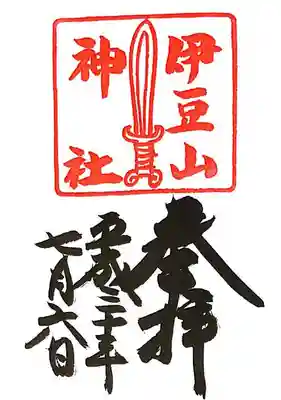 伊豆山
神社
奉拝
平成 年
七月六日